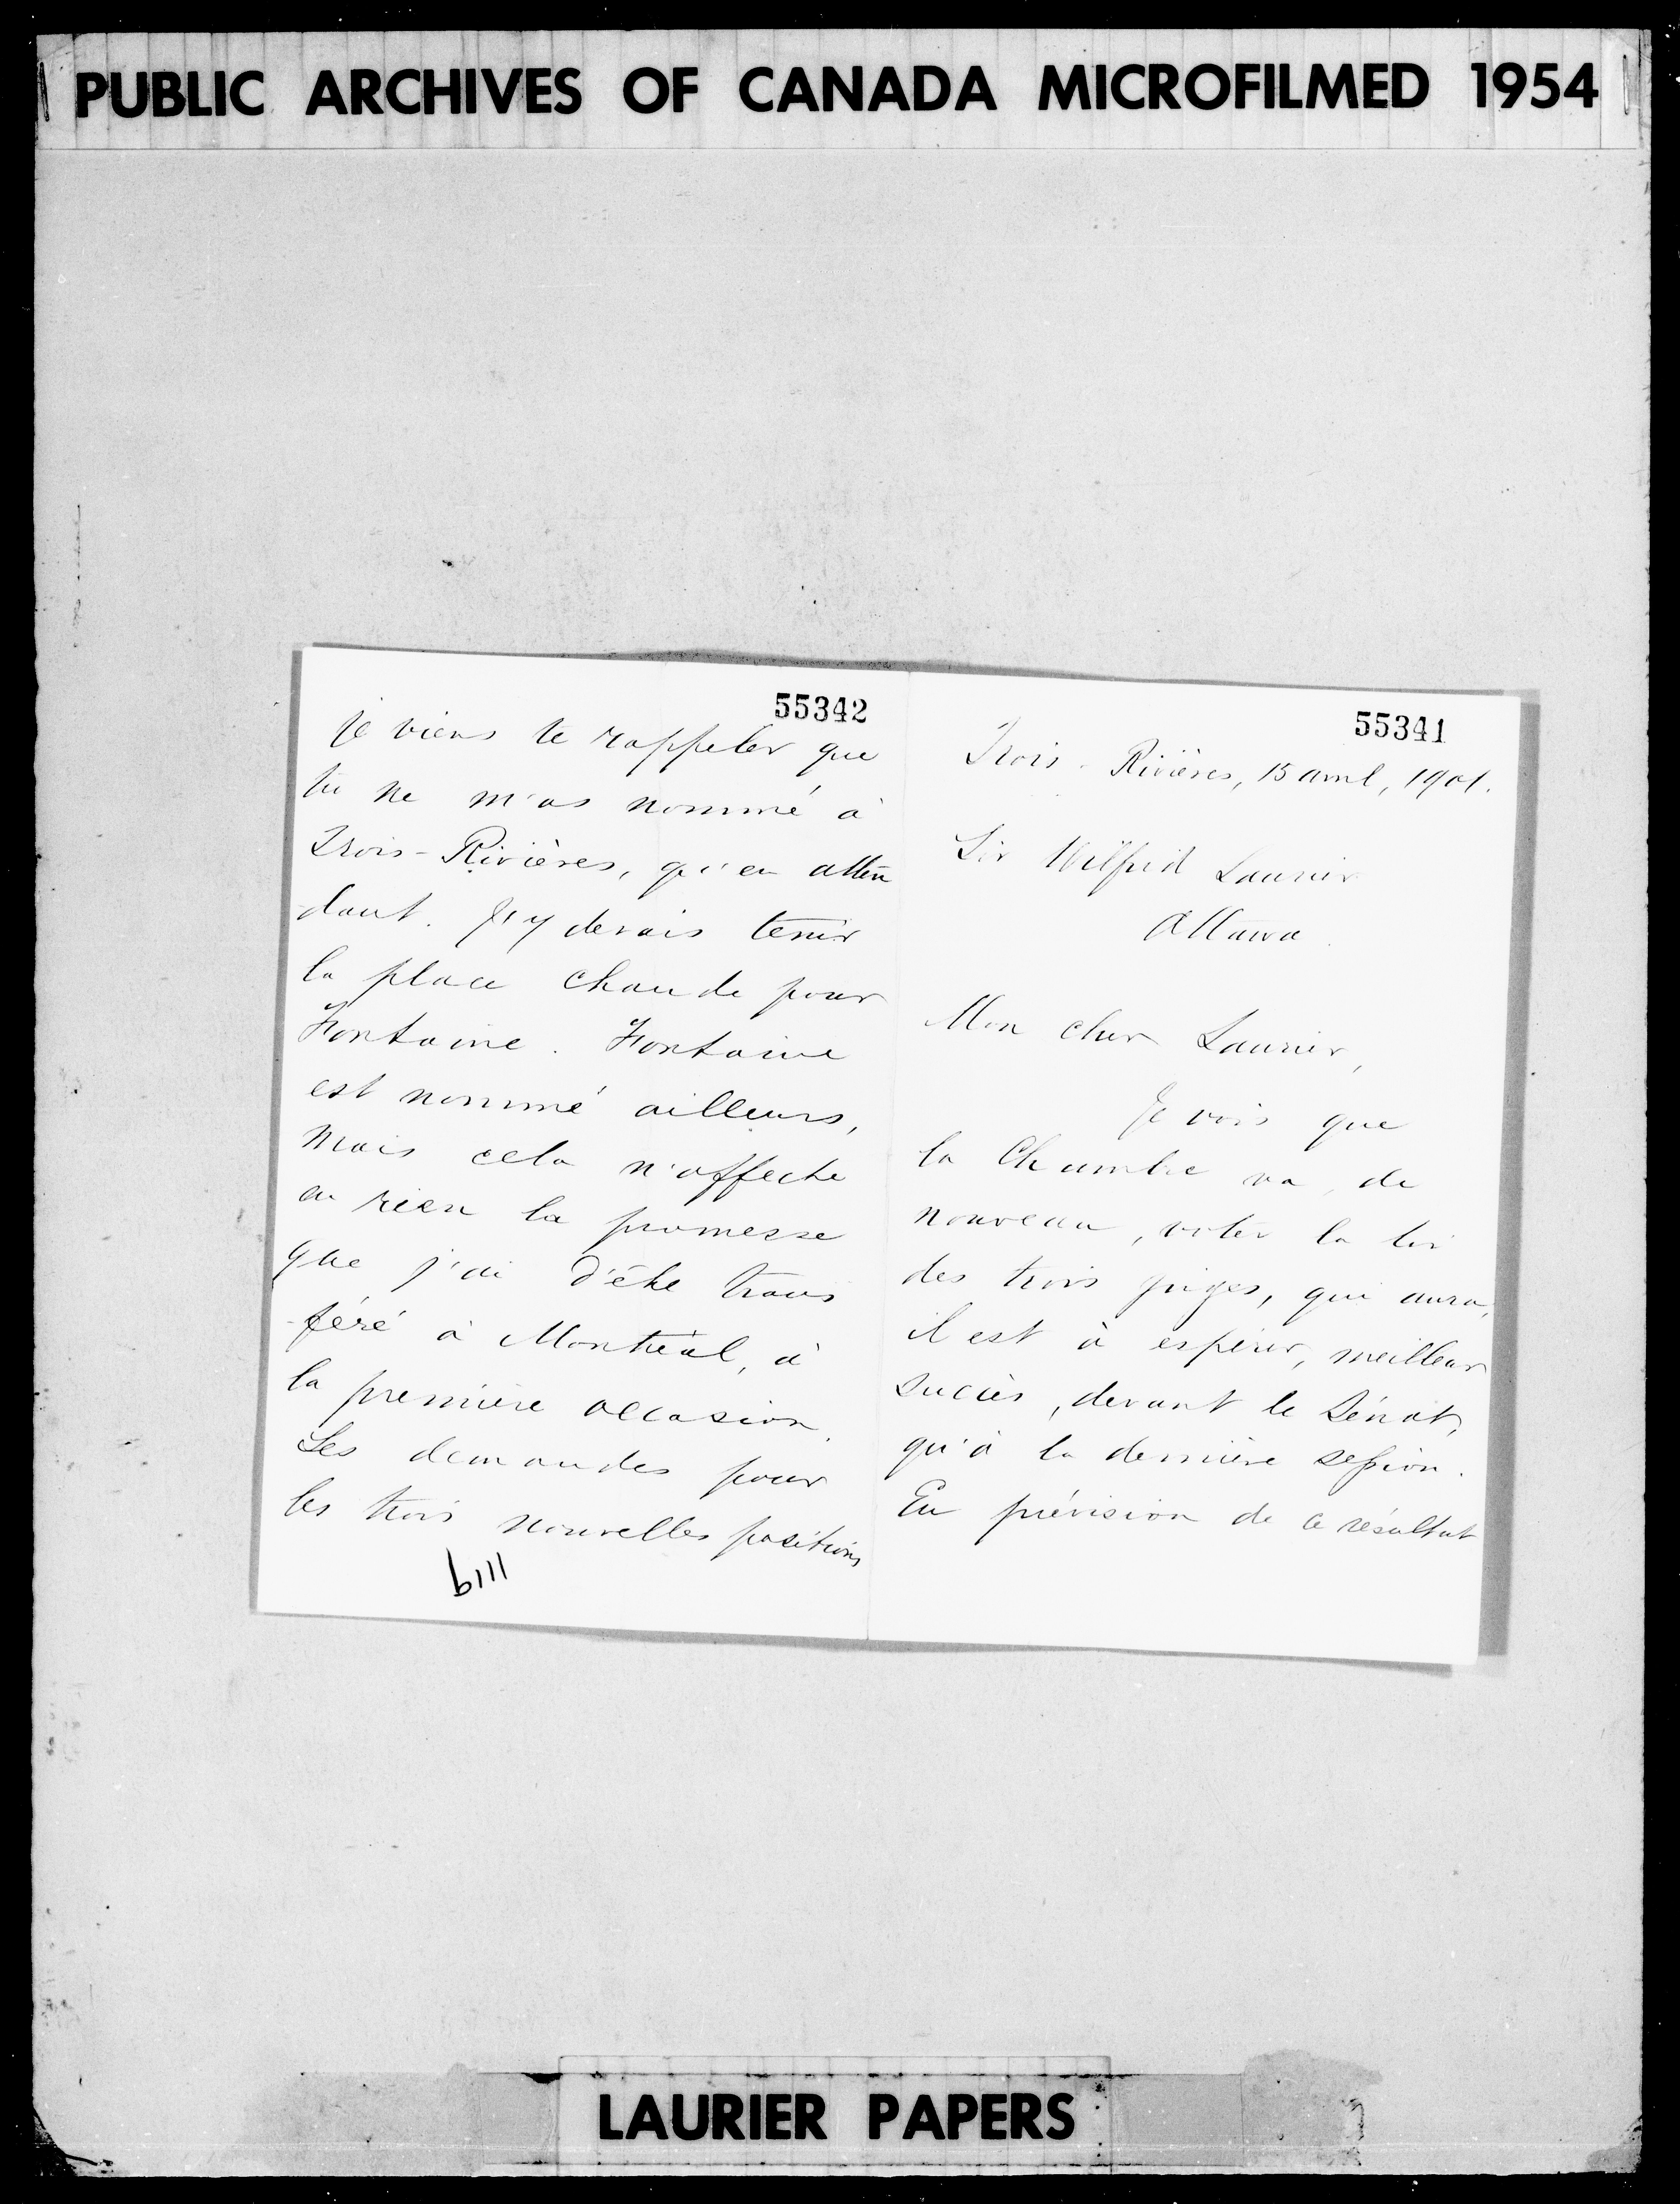 PUBLIC ARCHIVES OF CANADA MICROFILMED 1954
55341
Trois-Rivières, 15 avril, 1901.
Sir Wilfrid Laurier
Ottawa.
Mon cher Laurier,
Je vois que
la Chambre va, de
nouveau, voter la loi
des trois juges, qui aura,
il est à espérer, meilleur
succès, devant le Sénat,
qu'à la dernière session.
En prévision de ce résultat
55342
je viens te rappeler que
tu ne m'as nommé à
Trois-Rivières, qu'en atten
-dant. J'y devais tenir
la place chaude pour
Fontaine. Fontaine
est nommé ailleurs,
mais cela n'affecte
en rien la promesse
que j'ai d'être trans
-féré à Montréal, à
la première occasion.
Les demandes pour
les trois nouvelles positions
LAURIER PAPERS